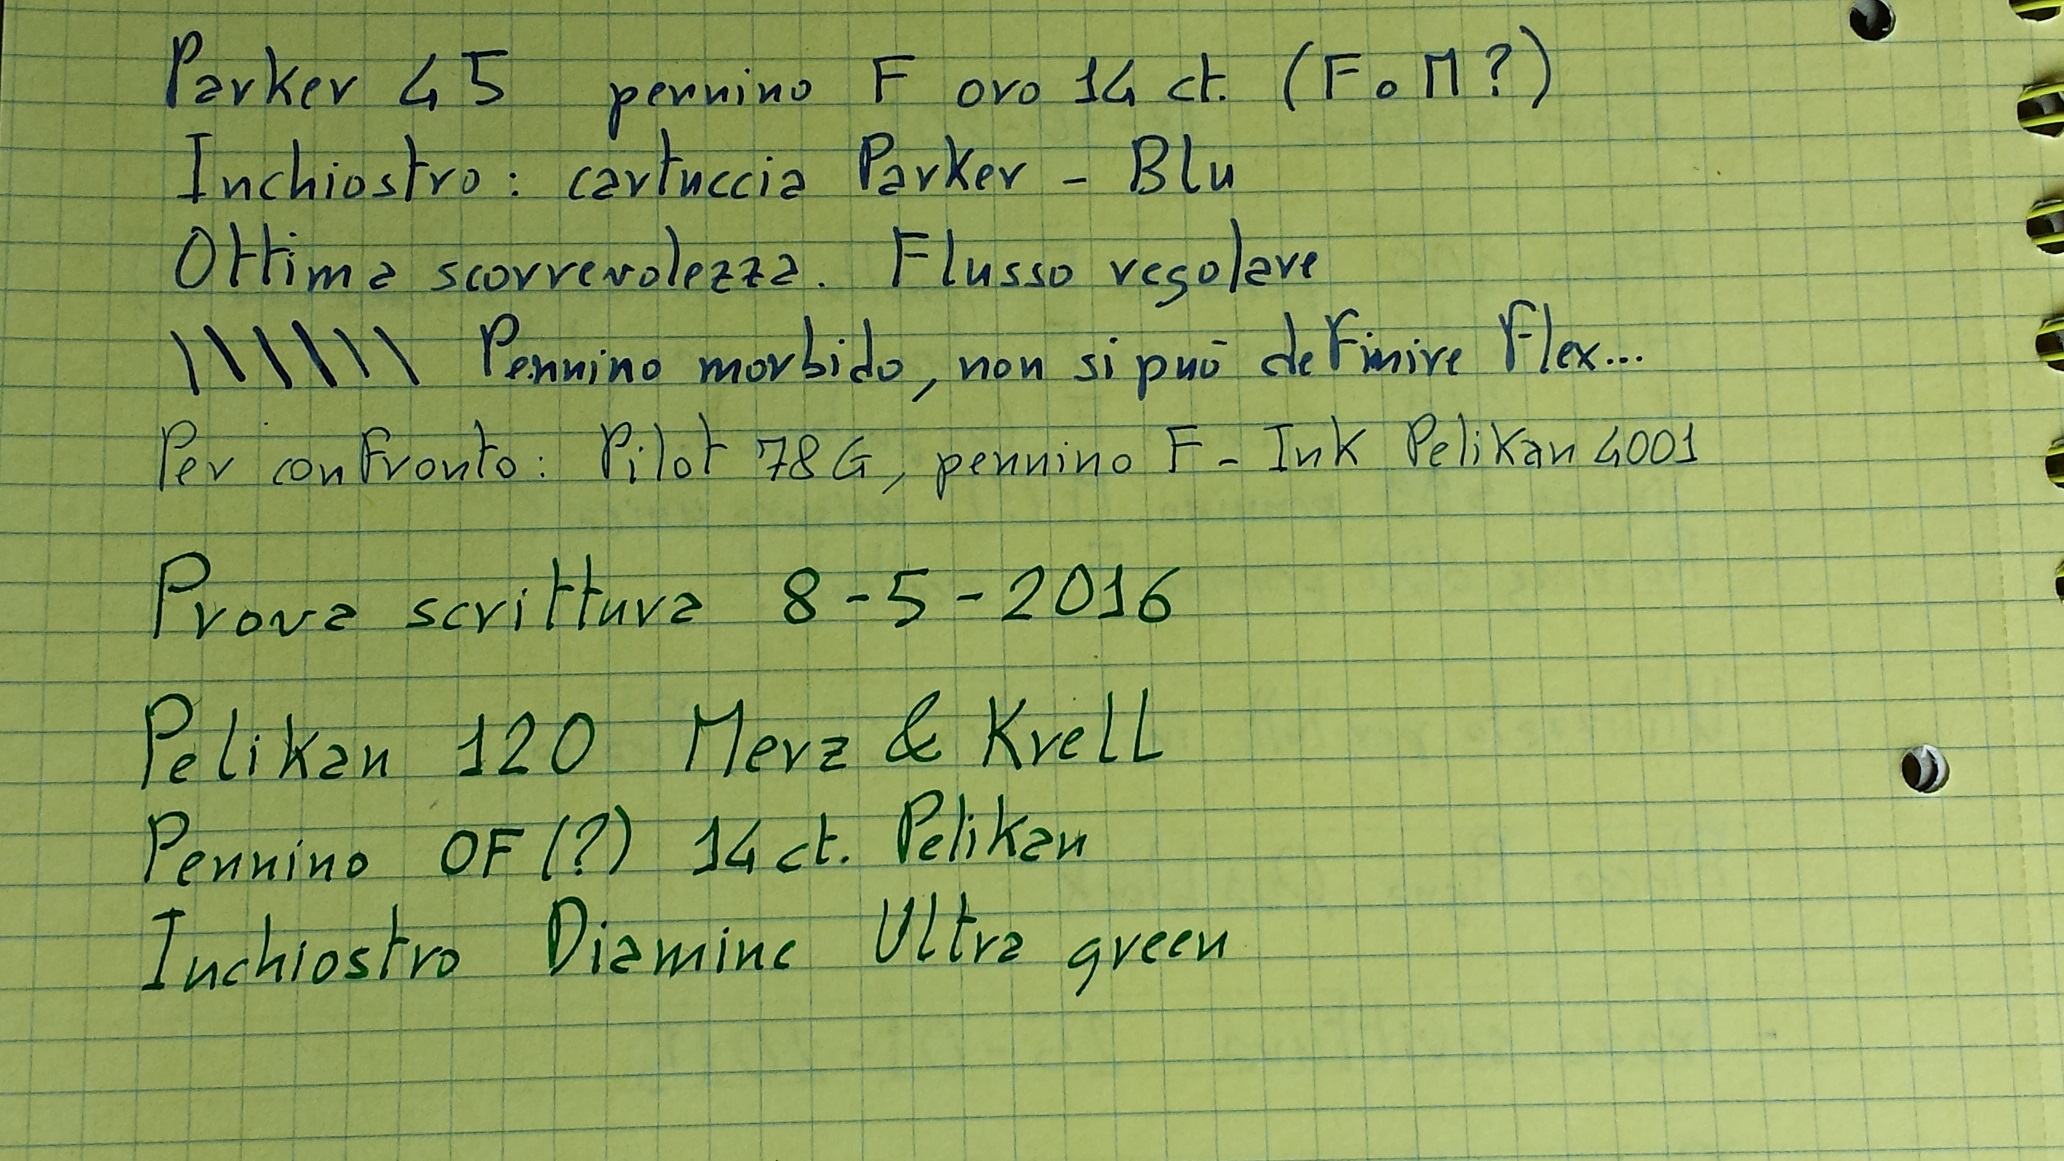 Parker 45 pennino F oro 14 ct. (F o M?)
Inchiostro: cartuccia Parker - Blu
Ottima scorrevolezza. Flusso regolare
\\\\\\ Pennino morbido, non si può definire flex...
Per confronto: Pilot 78G, pennino F - Ink Pelikan 4001
Prova scrittura 8-5-2016
Pelikan 120 Merz & Krell
Pennino OF (?) 14 ct. Pelikan
Inchiostro Diamine Ultra green